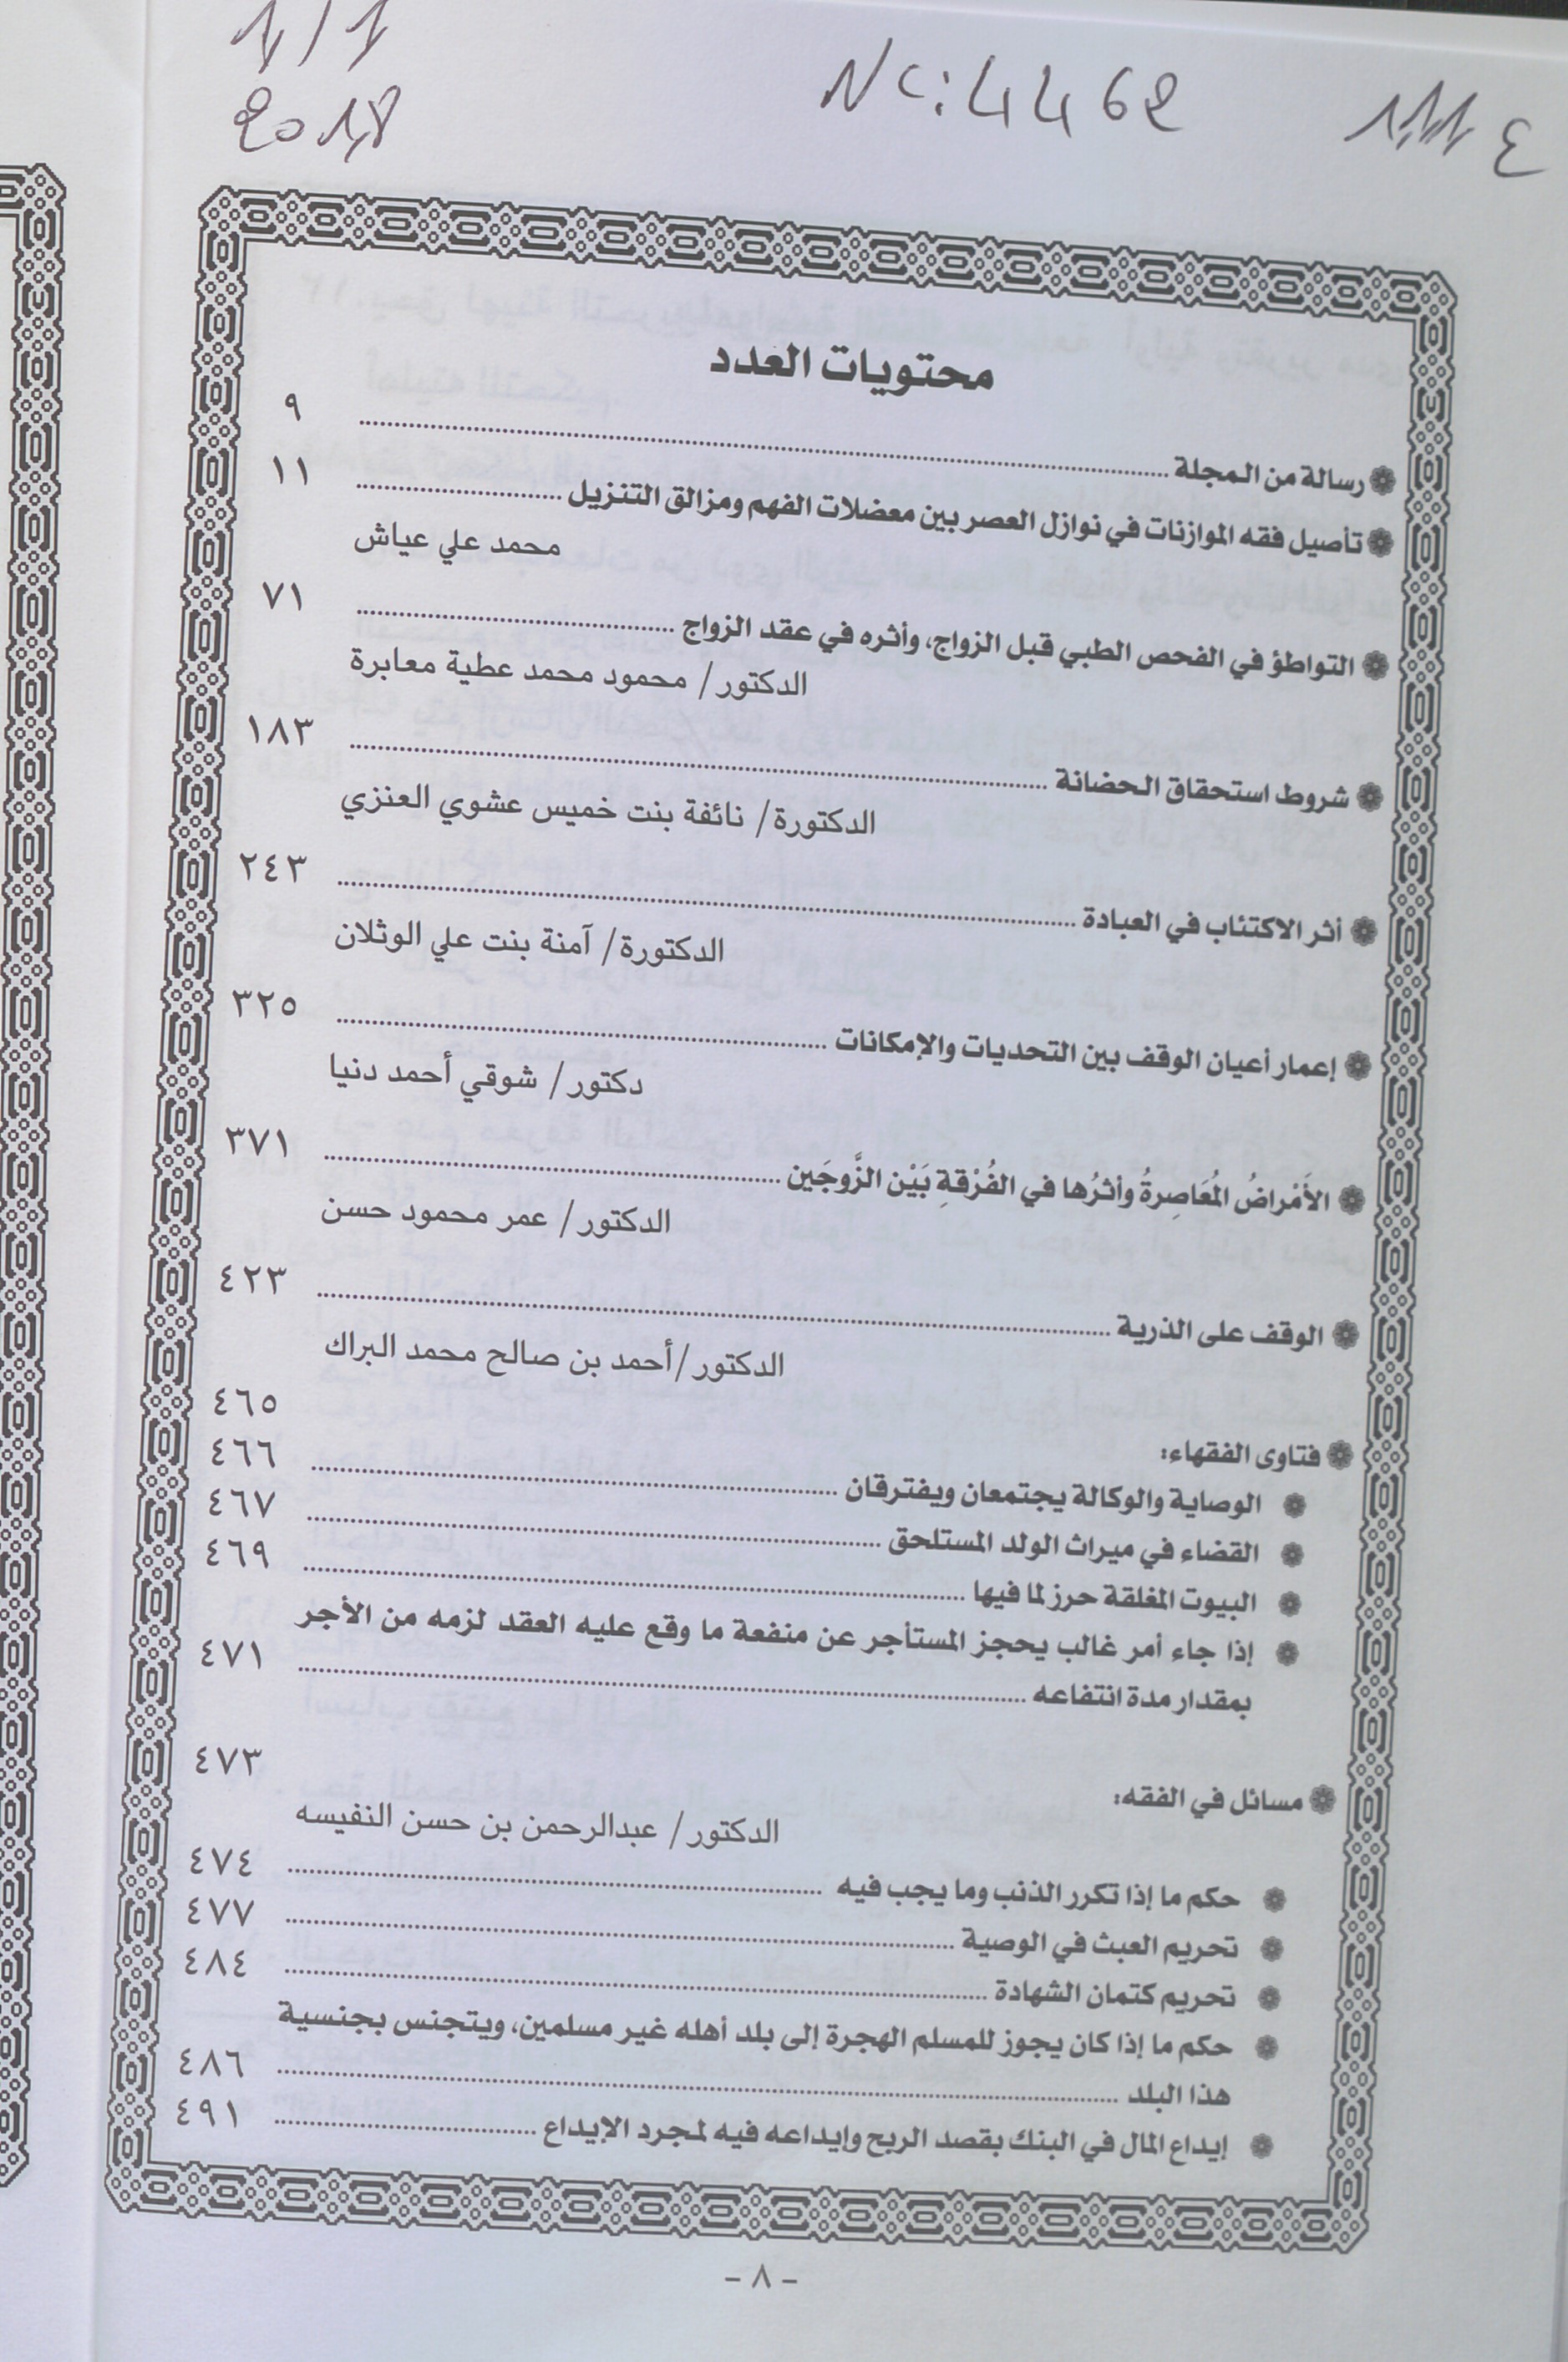 1/1
2018
Nc: 4462
محتويات العدد
رسالة من المجلة ٩
تأصيل فقه الموازنات في نوازل العصر بين معضلات الفهم ومزالق التنزيل ١١
محمد علي عياش
التواطؤ في الفحص الطبي قبل الزواج، وأثره في عقد الزواج ٧١
الدكتور/ محمود محمد عطية معابرة
شروط استحقاق الحضانة ١٨٣
الدكتورة/ نائفة بنت خميس عشوي العنزي
أثر الاكتئاب في العبادة ٢٤٣
الدكتورة/ آمنة بنت علي الوثلان
إعمار أعيان الوقف بين التحديات والإمكانات ٣٢٥
دكتور/ شوقي أحمد دنيا
الأَمْراضُ المُعَاصِرةُ وأثرُها في الفُرْقةِ بَيْن الزَّوجَين ٣٧١
الدكتور/ عمر محمود حسن
الوقف على الذرية ٤٢٣
الدكتور/أحمد بن صالح محمد البراك
فتاوى الفقهاء: ٤٦٥
الوصاية والوكالة يجتمعان ويفترقان ٤٦٦
القضاء في ميراث الولد المستلحق ٤٦٧
البيوت المغلقة حرز لما فيها ٤٦٩
إذا جاء أمر غالب يحجز المستأجر عن منفعة ما وقع عليه العقد لزمه من الأجر
بمقدار مدة انتفاعه ٤٧١
مسائل في الفقه: ٤٧٣
الدكتور/ عبدالرحمن بن حسن النفيسه
حكم ما إذا تكرر الذنب وما يجب فيه ٤٧٤
تحريم العبث في الوصية ٤٧٧
تحريم كتمان الشهادة ٤٨٤
حكم ما إذا كان يجوز للمسلم الهجرة إلى بلد أهله غير مسلمين، ويتجنس بجنسية
هذا البلد ٤٨٦
إيداع المال في البنك بقصد الربح وإيداعه فيه لمجرد الإيداع ٤٩١
- ٨ -